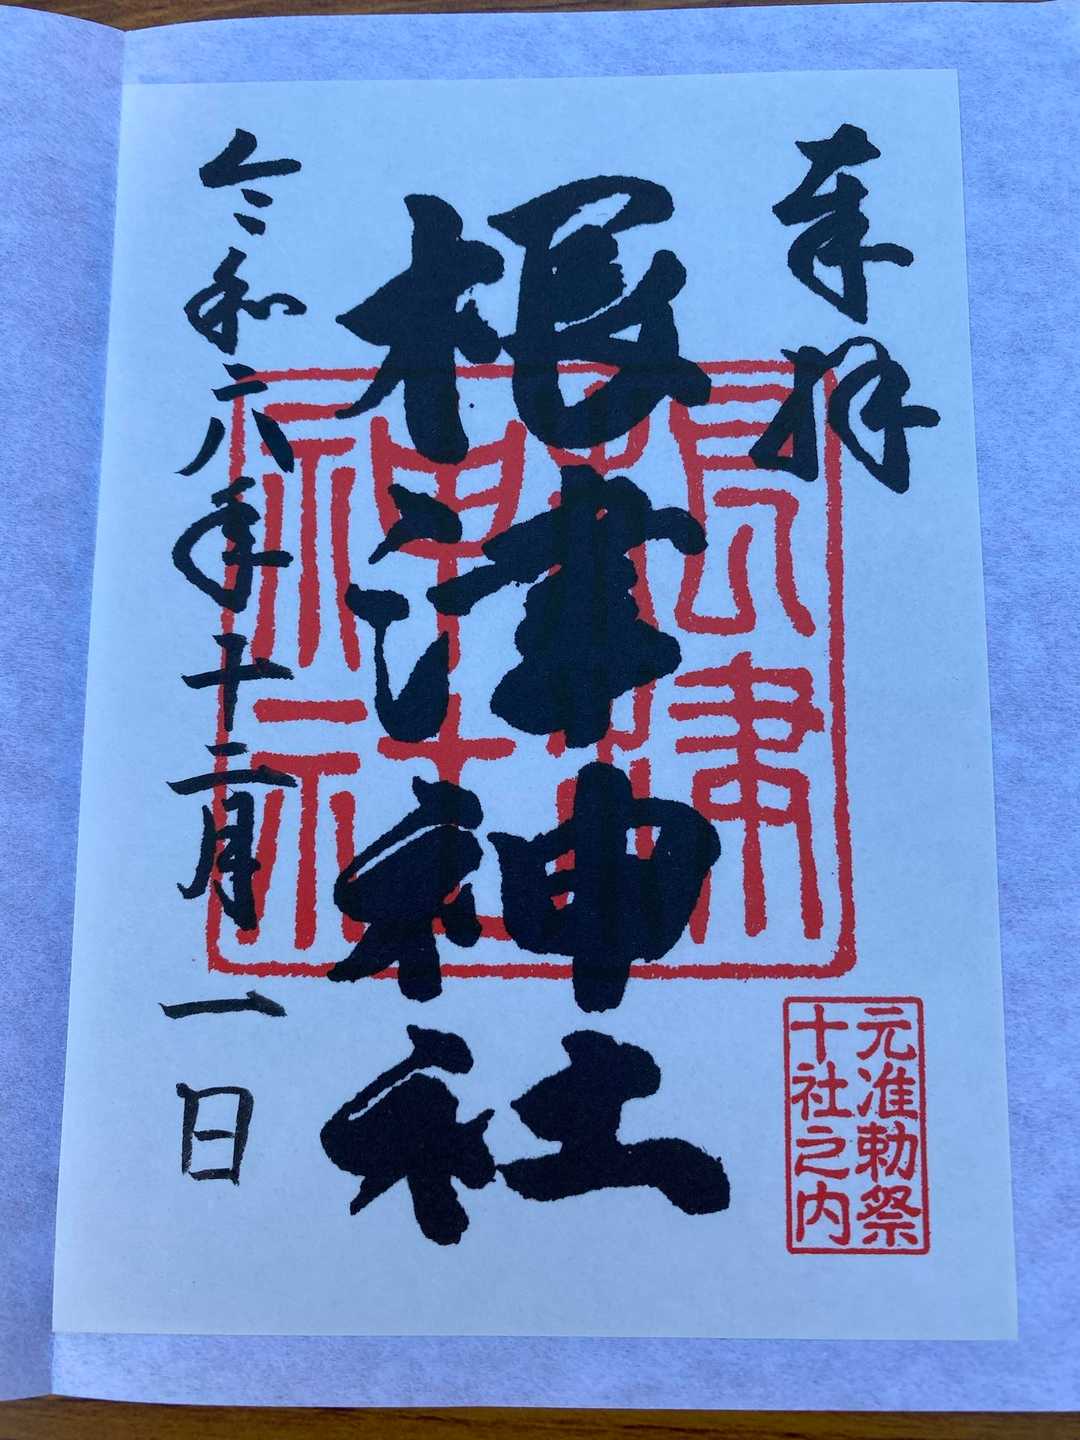 奉拝
根津神社
令和六年十二月一日
根津神社
元准勅祭
十社之内